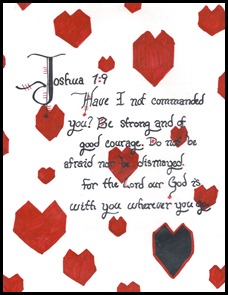 Joshua 1:9
Have I not commanded
you? Be strong and of
good courage. Do not be
afraid nor be dismayed.
For the Lord our God is
with you wherever you go.